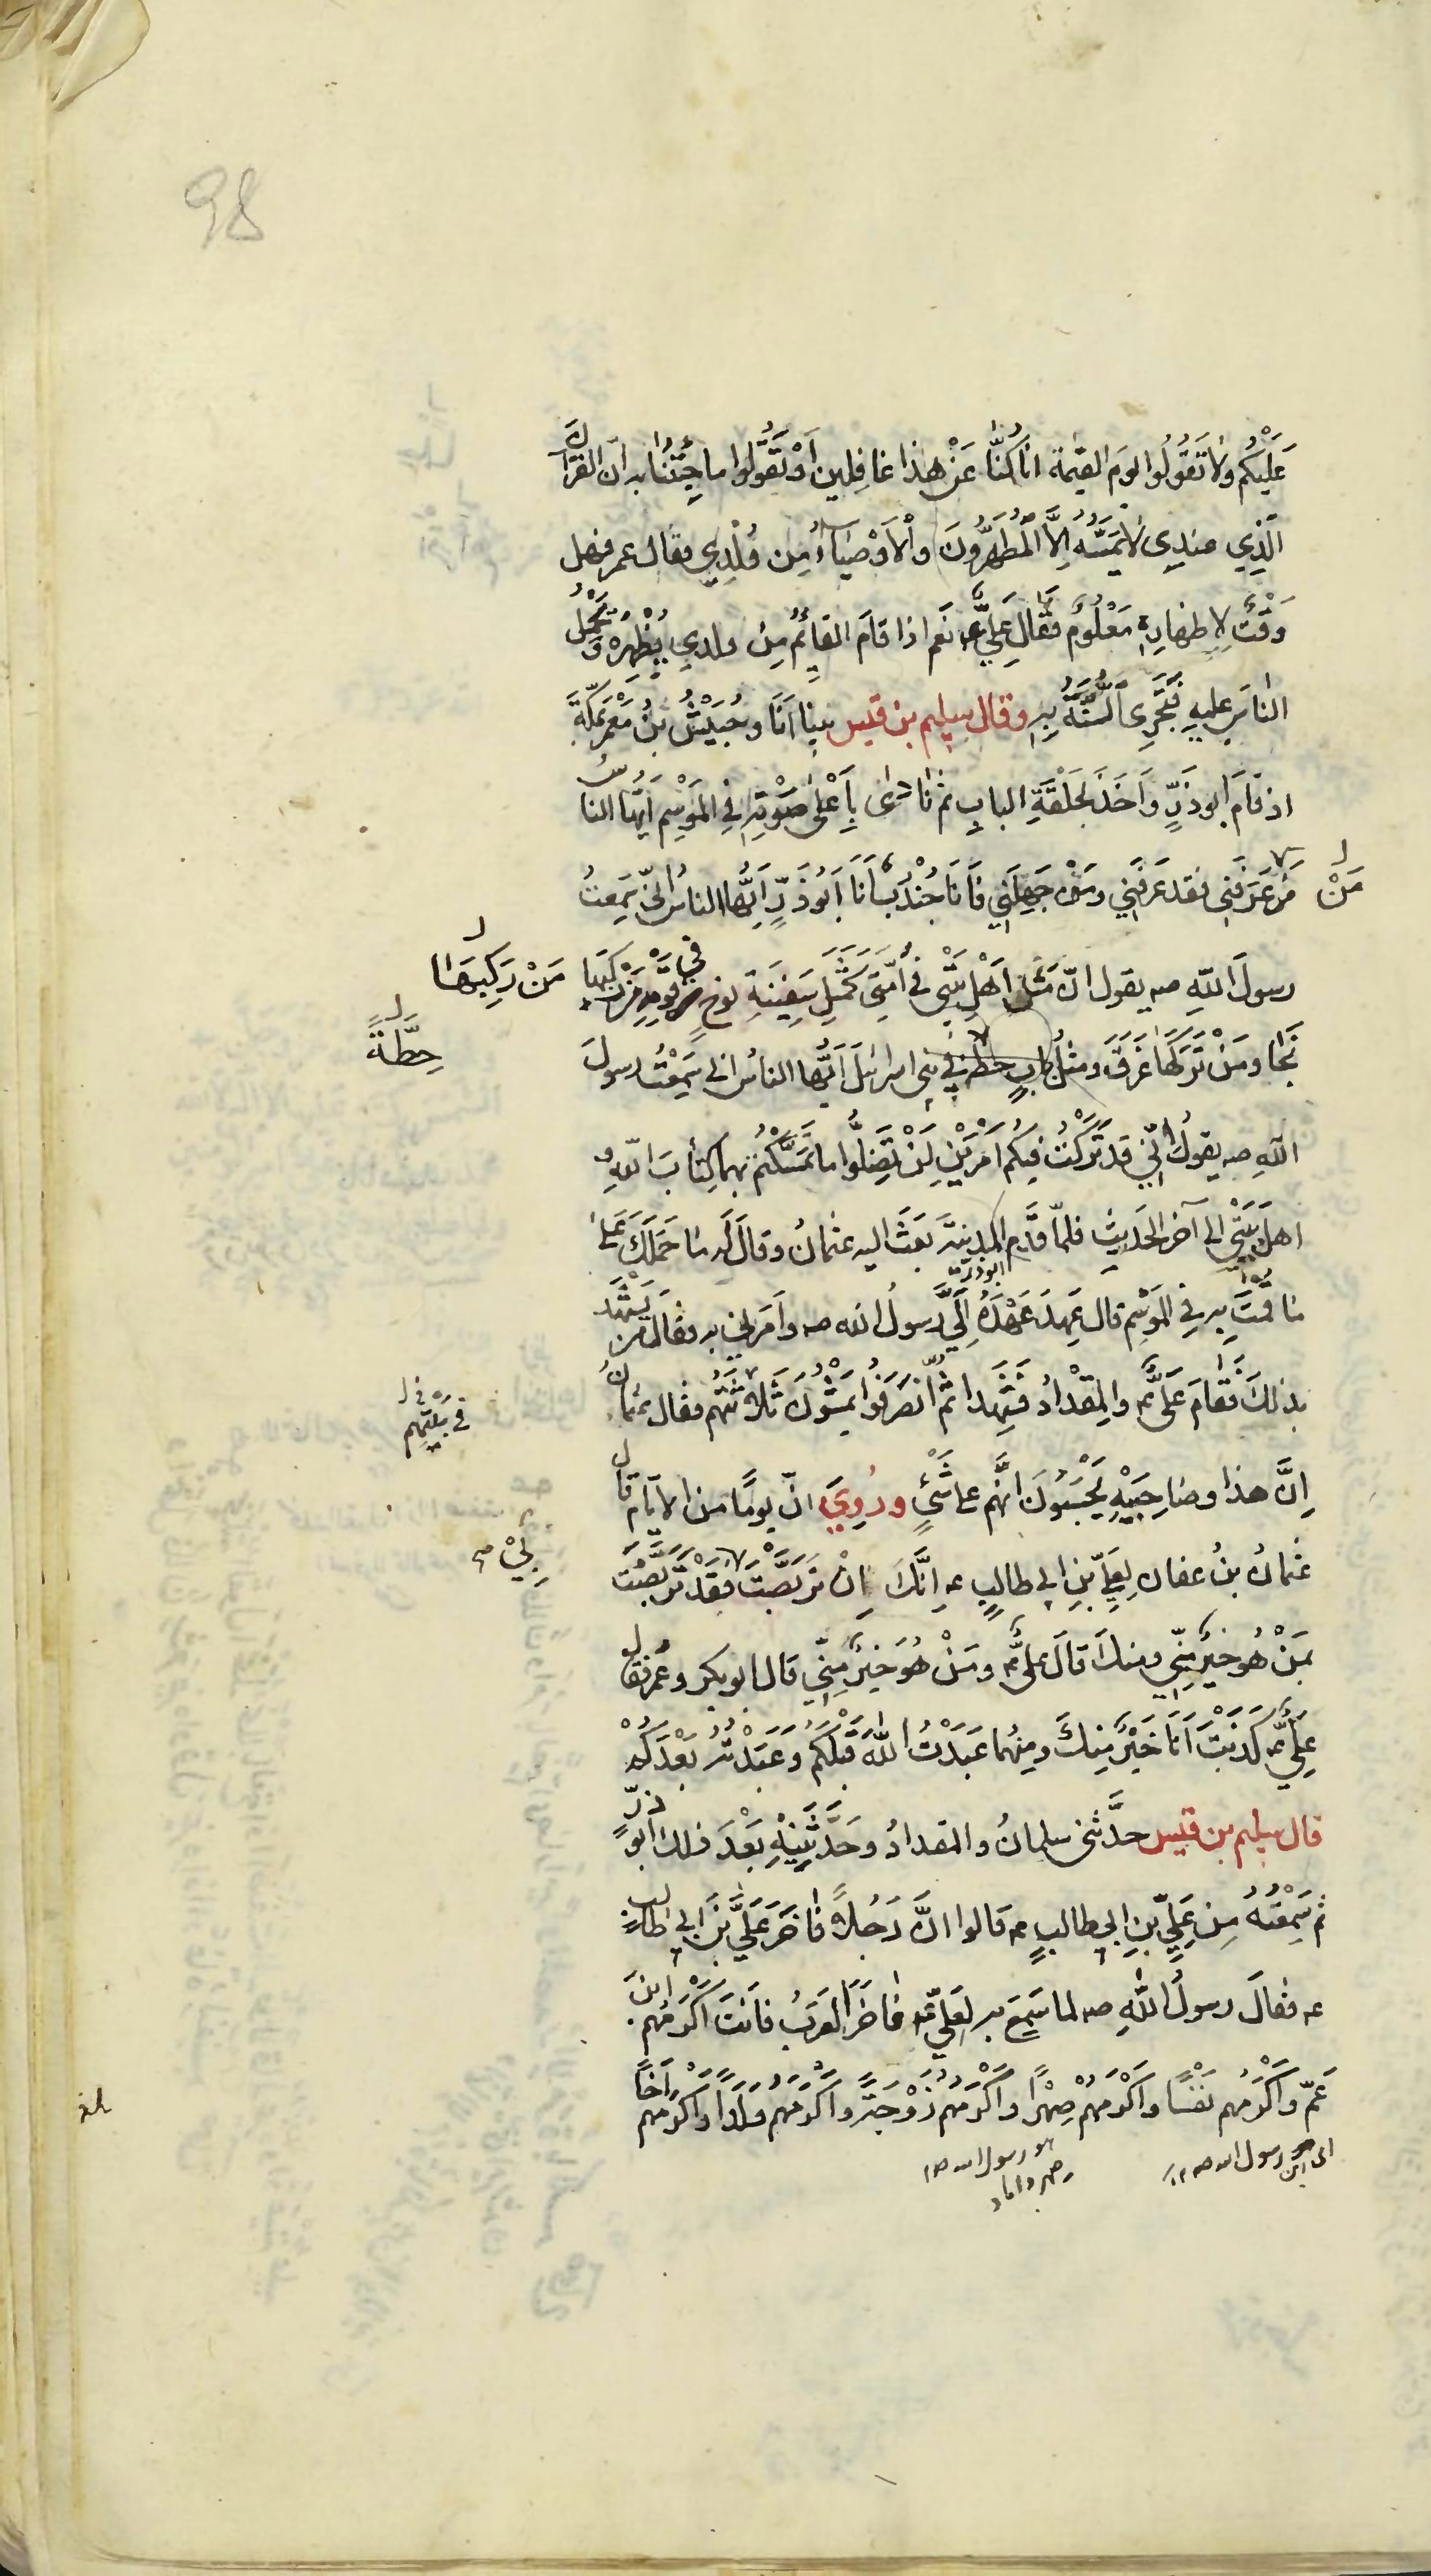 98
عَلَيْكُم ولا تَقُولُوا يومَ القيٰمة انّا كُنّا عَنْ هٰذا غافِلين اَوْ تَقُولوا ما جِئتَنا به انّ القرآنَ
الّذِي عندِى لا يَمَسُّهُ اِلاَّ المُطَهَّرُونَ والْاَوْصِيَاءُ مِن وُلْدِي فقال عمر فهل
وَقْتٌ لِاِظهارِهِ مَعْلُومٌ فقالَ عَلِيٌّ ع نَعَم اذا قامَ القائِمُ مِن ولدِي يُظْهِرُهُ ويَحْمِلُ
الناسَ عليهِ فَتَجْرِي السُّنَّةُ بِهِ وقال سليم بن قيس بينا اَنَا وحُبَيْشُ بنُ مُعْمَرٍ بمَكَّةَ
اذ قامَ ابو ذَرٍّ واَخَذَ بحَلْقَةِ البابِ ثم نادىٰ بِاَعْلىٰ صَوْتِهِ فِي المَوْسِمِ اَيُّها الناسُ
مَنْ عَرَفَنِي فقد عَرَفَنِي ومَنْ جَهِلَنِي فَاَنَا جُنْدُبٌ اَنَا اَبُو ذَرٍّ اَيُّها الناسُ اِنّي سَمِعتُ
مَنْ ل
رسولَ اللهِ صه يقول انّ مَثَلَ اَهْلِ بَيْتِي في اُمَّتِي كَمَثَلِ سَفِينَةِ نوحٍ في قَوْمِهِ مَنْ رَكِبَها
مَنْ رَكِبَهَا ل
نَجَا ومَنْ تَرَكَهَا غَرَقَ ومَثَلُ بابِ حِطَّةٍ في بَنِي اسرائيلَ اَيُّها الناسُ اني سَمِعْتُ رسولَ
حِطَّةٌ ل
اللهِ صه يقولُ اِنّي قَد تَرَكْتُ فيكُم اَمْرَيْنِ لَنْ تَضِلُّوا ما تَمَسَّكْتُمْ بهما كِتابَ اللهِ و
اهلَ بَيْتِي الى آخر الحَدِيثِ فلمّا قَدِمَ المدِينَةَ بَعَثَ اليه عثمانُ وقالَ لَه ما حَمَلَكَ عَلىٰ
ابوذر
ما قُمْتَ بِهِ فِي المَوْسِمِ قال عَهِدَ عَهْدَهُ اِلَيَّ رسولُ الله صه واَمَرَني به فقال من يَشْهَدُ
بذلكَ فَقَامَ عَلِيٌّ ع والمِقْدادُ فشَهِدا ثُمّ انْصَرَفُوا يَمْشُونَ ثَلاثَتُهُم فقال عثمانُ
اِنَّ هذا وصَاحِبَيْهِ يَحْسَبُونَ انَّهُم على شَيْءٍ ورُوِيَ انّ يومًا من الايّامِ قال
عُثمانُ بنُ عفان لِعَلِيِّ بْنِ ابي طالبٍ ع اِنَّكَ اِنْ تَرَبَّصْتَ فَقَدْ تَرَبَّصْتَ
بِي م
بمَنْ هُو خيرٌ مِنّي ومنكَ قالَ علىٌّ ع ومَنْ هُوَ خَيْرٌ مِنّي قال ابو بكر وعُمَر فقال
عَلِيٌّ ع كَذَبْتَ اَنَا خَيْرٌ مِنكَ ومِنهُما عَبَدْتُ اللهَ قَبْلَكُم وَعَبَدْتُهُ بَعْدَكُم
قال سليم بن قيس حدَّثني سلمانُ والمقدادُ وحَدَّثَنِيهِ بَعْدَ ذلك ابو ذرٍّ
ثم سَمِعْتُهُ مِن عَلِيِّ بْنِ ابي طالبٍ ع قالوا انَّ رَجُلاً فاخَرَ عَلِيَّ بْنَ ابي طالبٍ
ع فقالَ رسولُ اللهِ صه لما سَمِعَ به لعَلِيٍّ ع فاخَرَ العَرَبُ فاَنتَ اَكْرَمُهُم ابنَ
عَمّ واَكْرَمُهم نَفْسًا واَكْرَمُهُم صِهْرًا واَكْرَمُهُم زَوْجَةً واَكْرَمُهُم وَلَدًا واَكْرَمُهم اَخًا
رسول الله ص
هو رسول الله ص